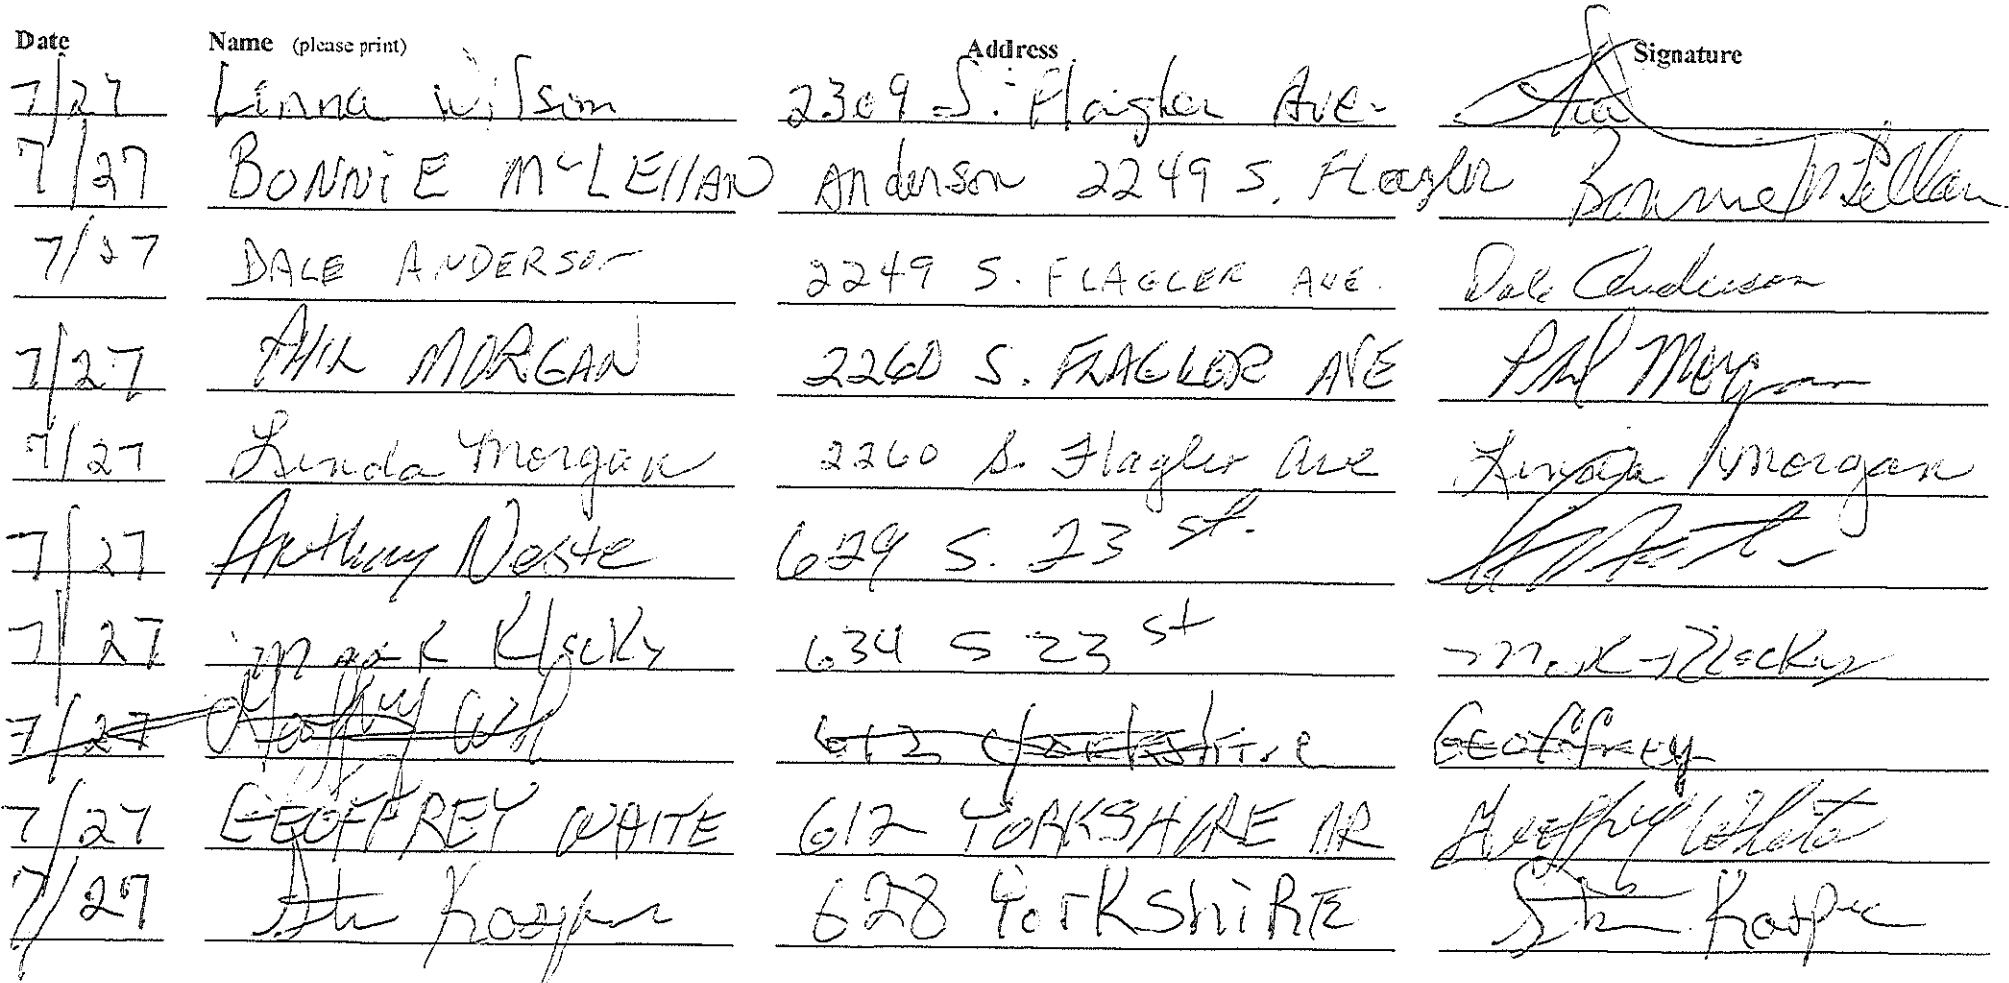 Date Name (please print) Address Signature
7/27 Lenna Wilson 2309 S. Flaigler Ave.
7/27 BONNIE McLEllAN Anderson 2249 S. FLagler Bonnie McLellan
7/27 DALE ANDERSON 2249 S. FLAGLER AVE. Dale Anderson
7/27 PHIL MORGAN 2260 S. FLAGLER AVE Phil Morgan
7/27 Linda Morgan 2260 S. Flagler Ave Linda Morgan
7/27 Anthony Neste 629 S. 23 st.
7/27 Mark Klacky 634 S 23 st Mark Klacky
7/27 Geoffrey Wh 612 Yorkshire Geoffrey
7/27 GEOFFREY WHITE 612 YORKSHIRE DR Geoffrey White
7/27 Kasper 628 YorKShiRE Kasper